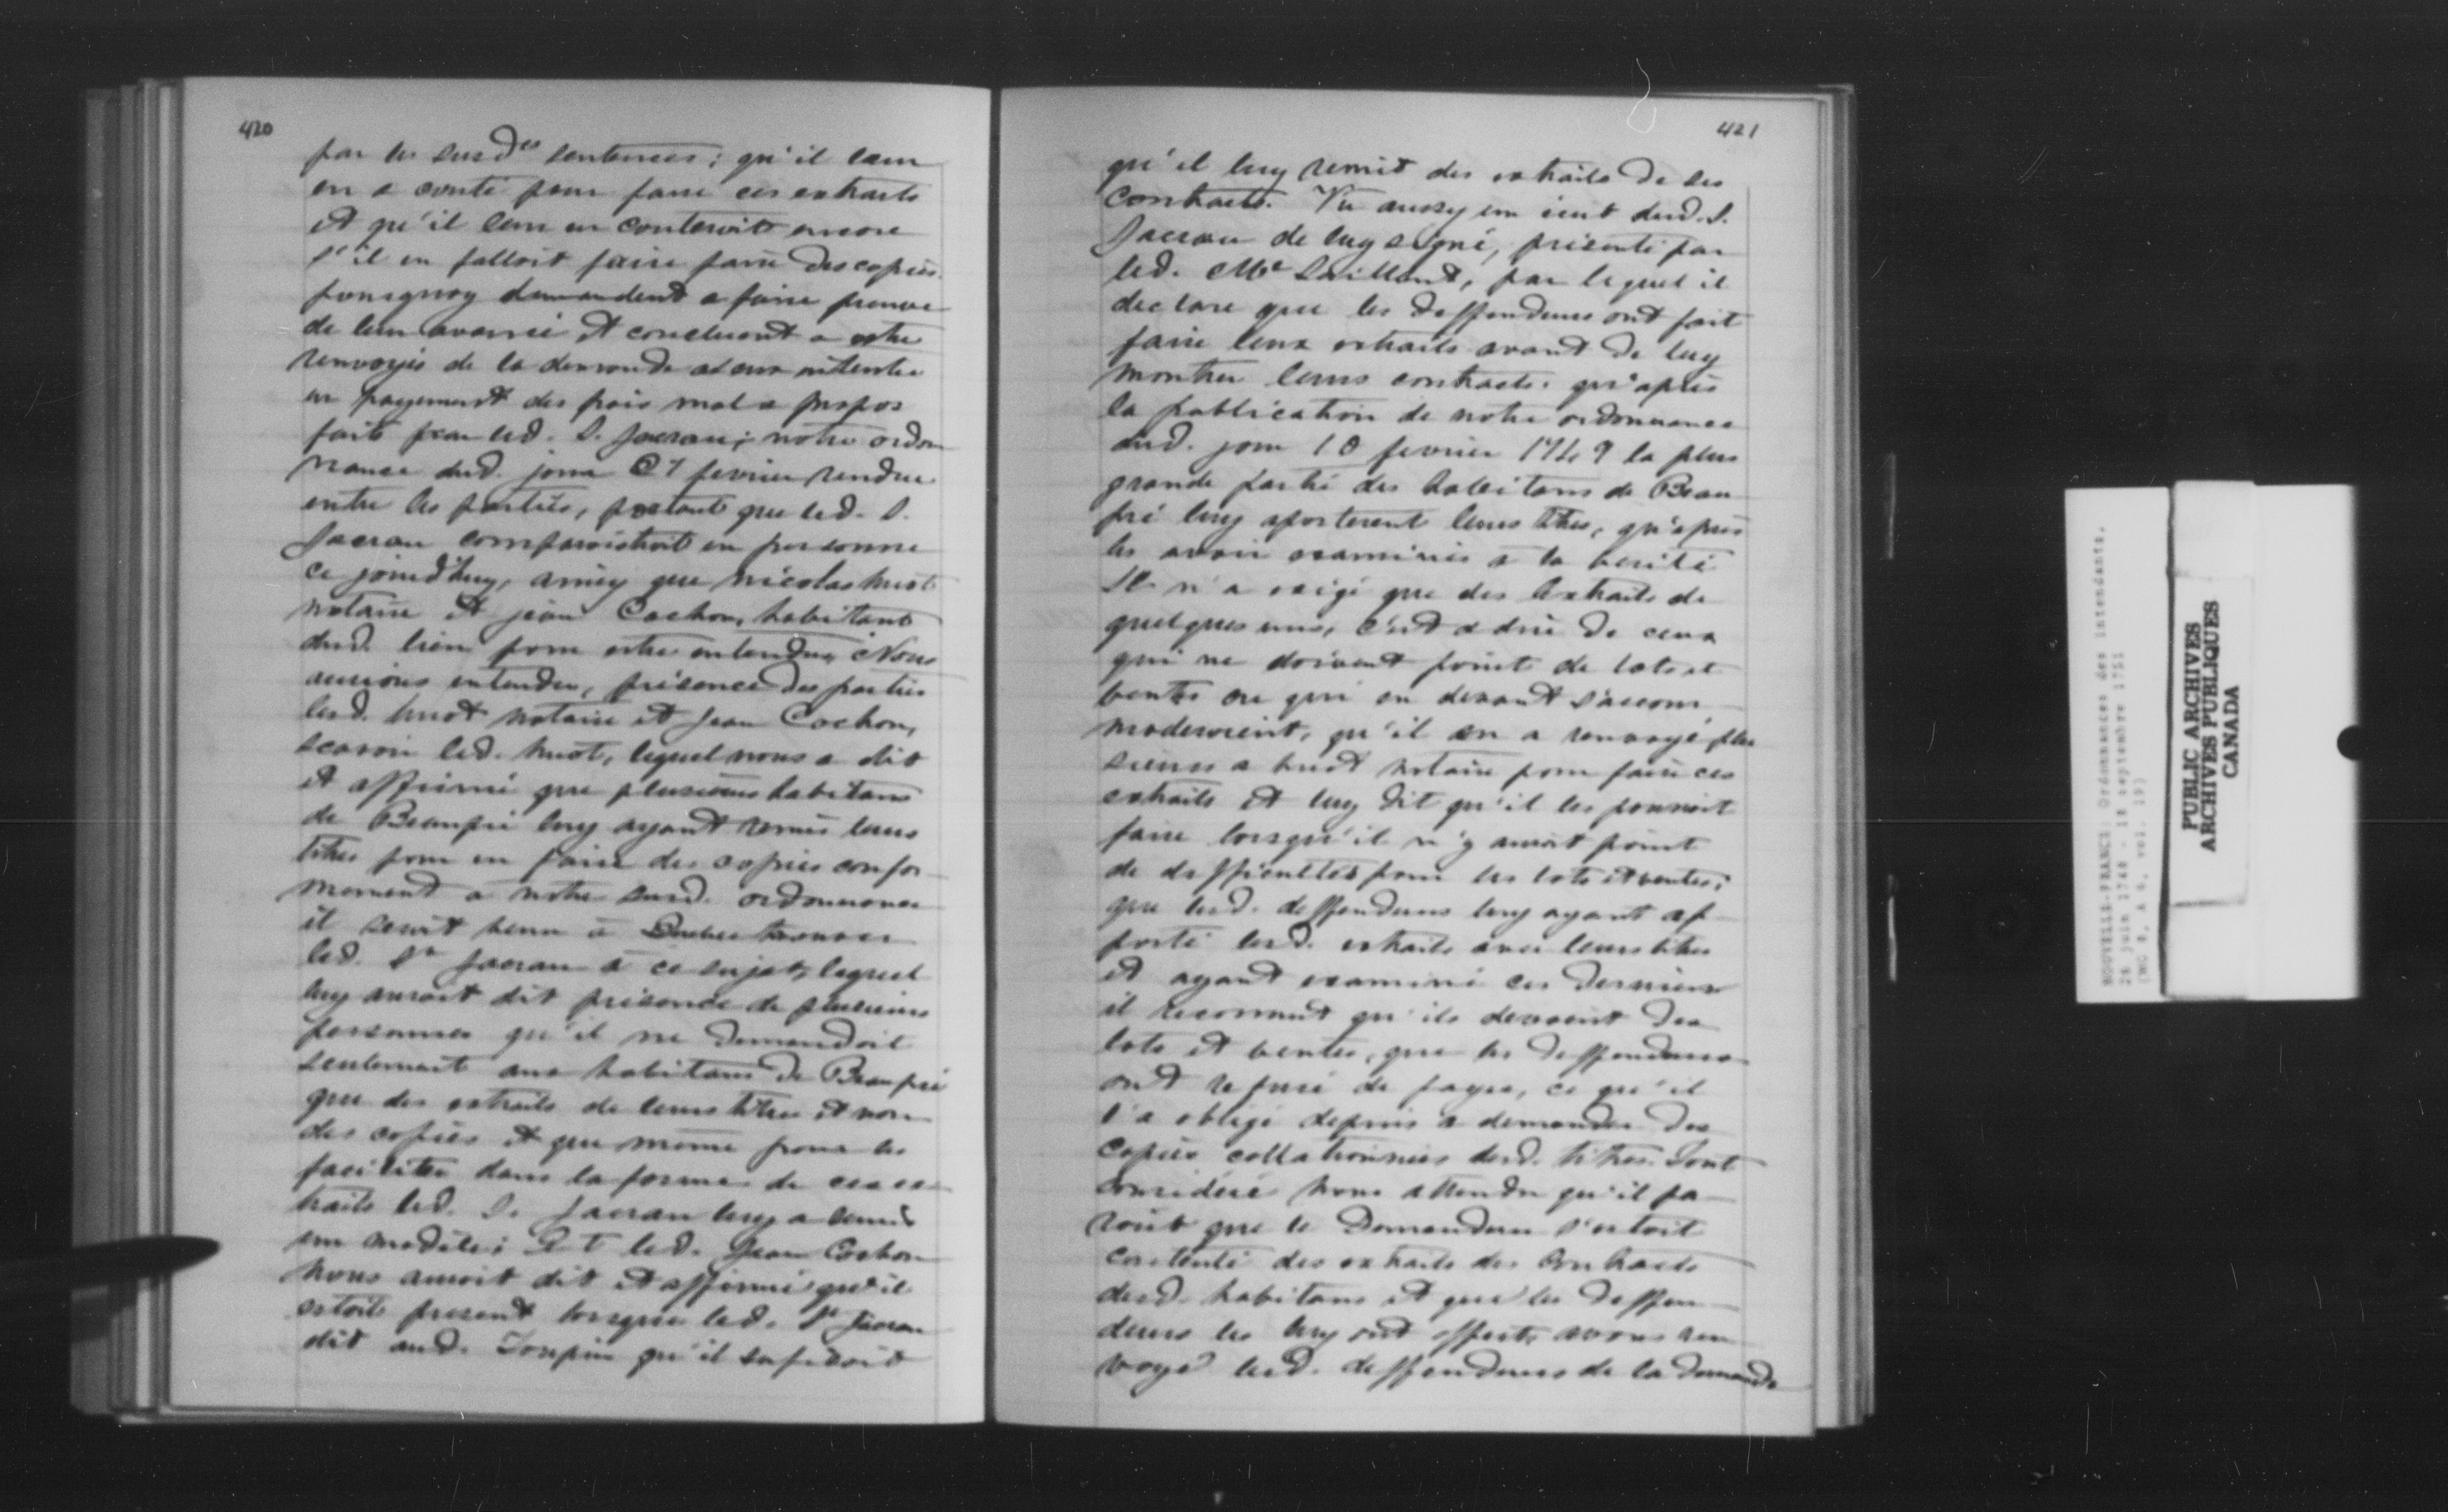 420
par les susd.es sentences; qu'il leur
en a couté pour faire ces extraits
et qu'il leur en couteroit encore
s'il en falloit faire faire des copies
pourquoy demandent a faire preuve
de leur avancé et concluent a estre
renvoyés de la demande a eux intentée
en payement des frais mal a propos
faits par led. S. Jacrau; notre ordon
nance dud. jour 27 fevrier rendue
entre les parties, portant que led. S.
Jacrau comparoistroit en personne
ce jourd'huy, ainsy que nicolas huot
notaire et jean Cochon, habitant
dud. lieu pour estre entendus Nous
aurions entendu, présence des parties
lesd. huot notaire et Jean Cochon,
scavoir led. huot, lequel nous a dit
et affirmé que plusieurs habitans
de Beaupré luy ayant remis leurs
titres pour en faire des copies confor
mement a notre susd. ordonnance
il seroit venu à Quebec trouver
led. Sr Jacrau a ce sujet, lequel
luy auroit dit présence de plusieurs
personnes qu'il ne demandoit
seulement aux habitans de Beaupré
que des extraits de leurs titres et non
des copies et que même pour les
faciliter dans la forme de ces ex
traits led. S. Jacrau luy a remis
un modèle; Et led. Jean Cochon
nous auroit dit et affirmé qu'il
estoit present lorsque led. Sr Jacrau
dit aud. Toupin qu'il sufisoit
421
qu'il luy remit des extraits de ses
contracts. Vu aussy un écrit dud. S.
Jacrau de luy signé, présenté par
led. Me Saillant, par lequel il
declare que les deffendeurs ont fait
faire leurs extraits avant de luy
montrer leurs contracts. qu'après
la publication de notre ordonnance
dud. jour 10 fevrier 1749 la plus
grande partie des habitans de Beau
pré luy aporterent leurs titres, qu'apres
les avoir examinés a la verité
Il n'a exigé que des Extraits de
quelques uns, c'est a dire de ceux
qui ne doivent point de lots et
ventes ou qui en devant s'accom
moderoient, qu'il en a renvoyé plu
sieurs a huot notaire pour faire ces
extraits et luy dit qu'il les pouvoit
faire lorsqu'il n'y auroit point
de difficultés pour les lots et ventes;
que lesd. deffendeurs luy ayant ap
porté lesd. extraits avec leurs titres
et ayant examiné ces derniers
il reconnut qu'ils devoient des
lots et ventes, que les deffendeurs
ont refusé de payer, ce qu'il
l'a obligé depuis a demander des
copies collationnées desd. titres. Tout
considéré Nous attendu qu'il pa
roit que le Demandeur s'estoit
contenté des extraits des contracts
desd. habitans et que les deffen
deurs les luy ont offerts avons ren
voyé lesd. deffendeurs de la demande
NOUVELLE-FRANCE: Ordonnances des intendants.
28 juin 1748 - 18 septembre 1751
(MG 8, A 6, vol. 19)
PUBLIC ARCHIVES
ARCHIVES PUBLIQUES
CANADA